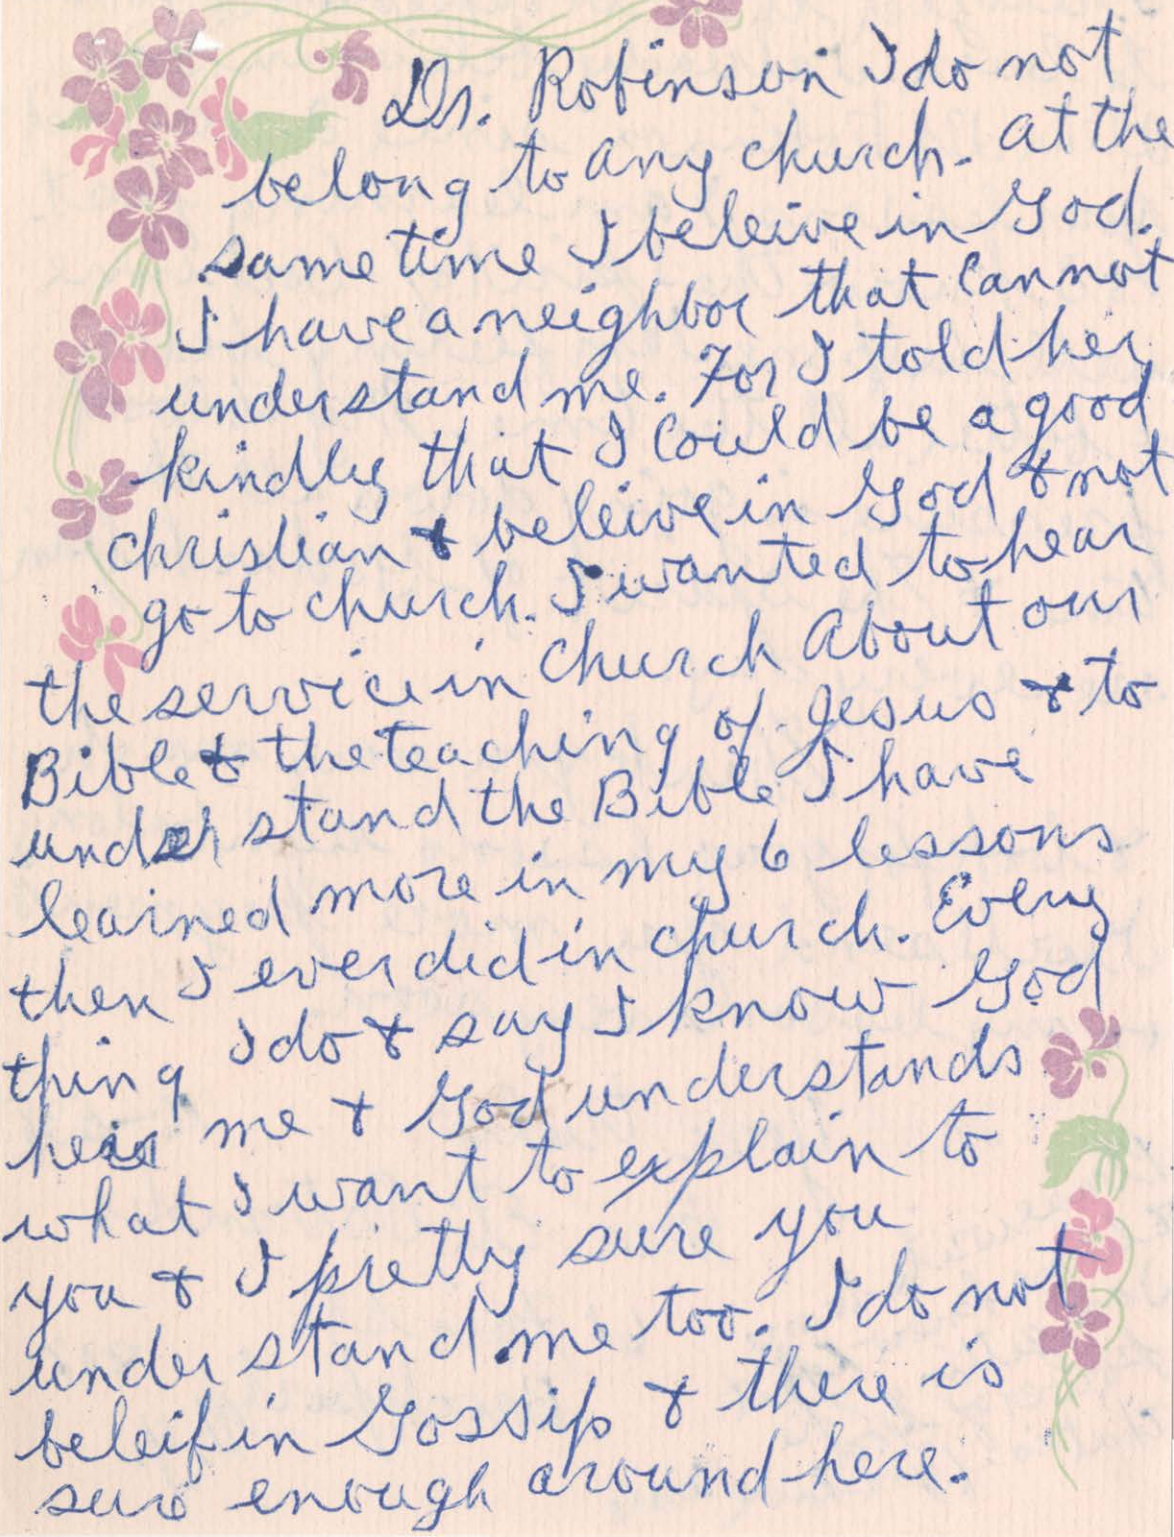 Dr. Robinson I do not
belong to any church. at the
same time I beleive in God.
I have a neighbor that cannot
understand me. For I told her
kindly that I could be a good
christian & beleive in God & not
go to church. I wanted to hear
the service in church About our
Bible & the teaching of Jesus & to
under stand the Bible I have
learned more in my 6 lessons
then I ever did in church. Every
thing I do & say I know God
hears me & God understands
what I want to explain to
you & I pretty sure you
under stand me too. I do not
beleif in Gossip & there is
sure enough around here.